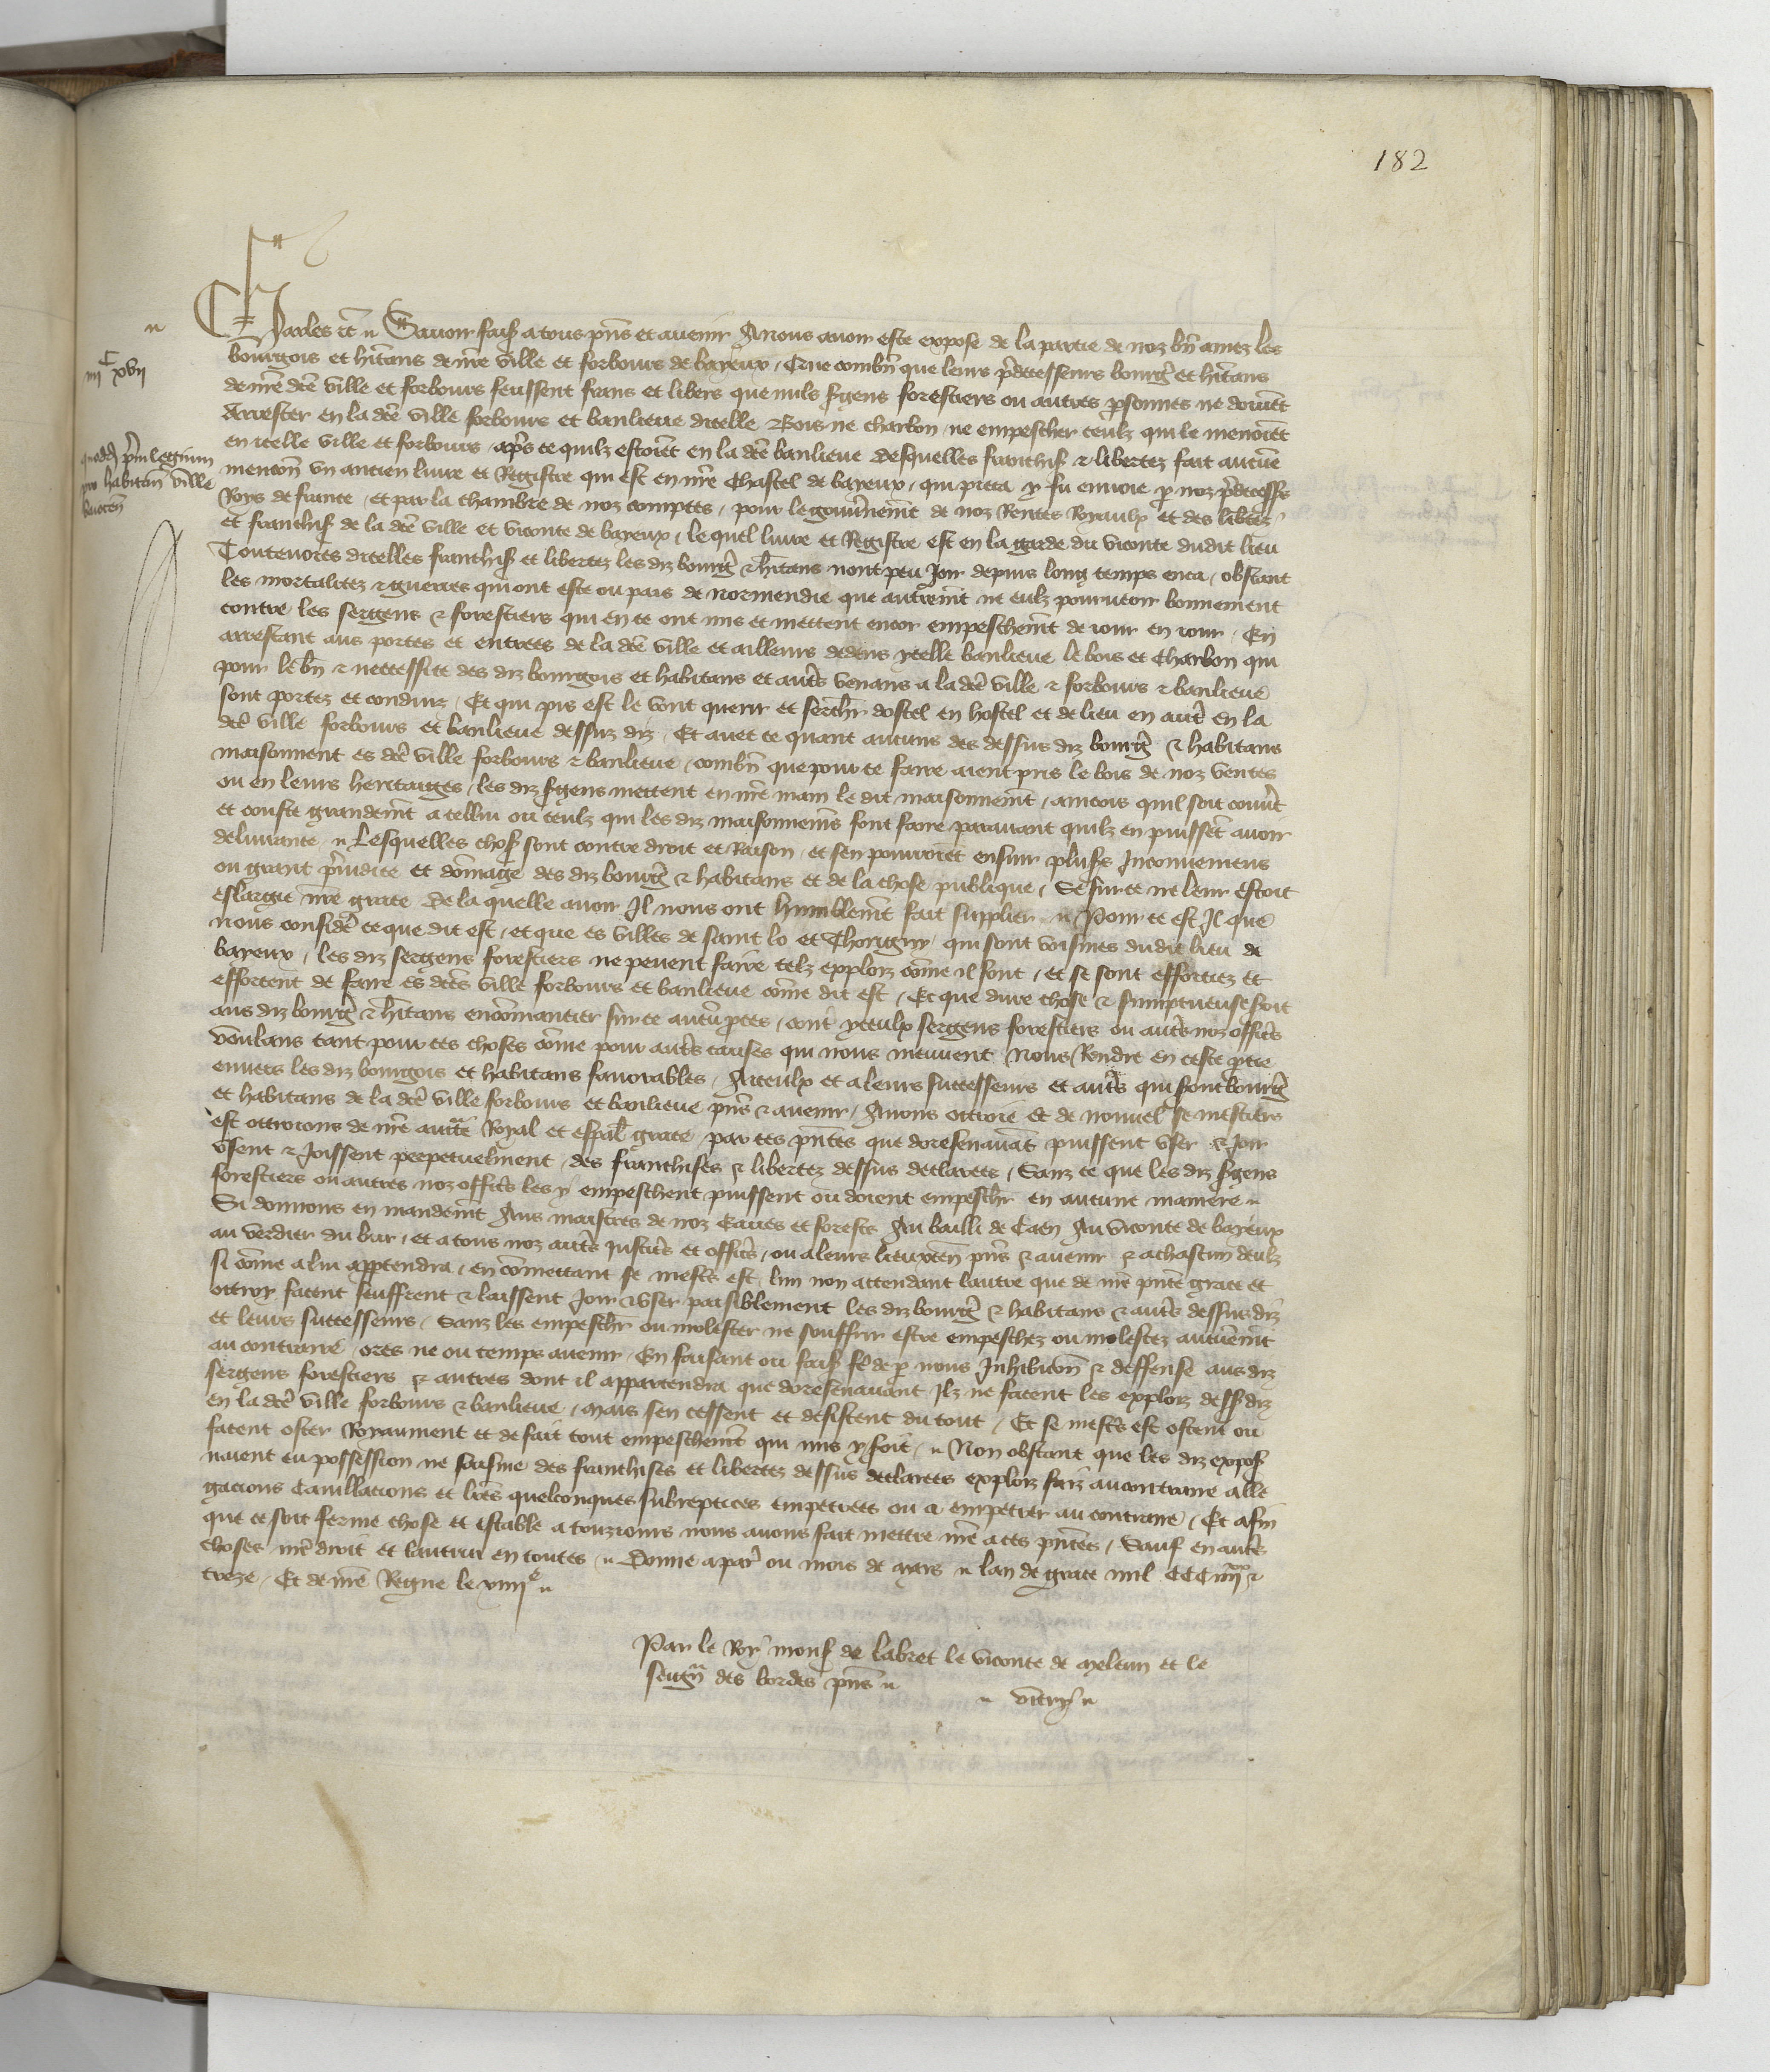 182
Charles etc. Savoir faiß a tous pñs et avenir A nous avoir este expose de la partie de noz bñ amez les
bourgois et hitans de nr̃e ville et forbours de bayeux, Que combñ que leurs p̃decesseurs bourg̃ et hitans
de nr̃e dce ville et forbours feussent frans et libers que nuls sgens forestiers ou autres psonnes ne doivẽt
Arrester en la dce ville forbours et banlieue dicelle Bois ne charbon, ne empescher ceulz qui le menoiẽt
en icelle ville et forbours, ap̃s ce quilz estoiẽt en la dce banlieue desquelles franchiß & libertez fait aucũe
mencoñ un ancien livre et Registre qui est en nr̃e Chastel de bayeux, qui pieca y fu envoie p noz p̃decess̃s
Roys de france, et par la chambre de noz comptes, pour le gouv̾nem̃t de noz Rentes Royaulx et des lib̾tez
et franchiß de la dce ville et viconte de bayeux, lequel livre et Registre est en la garde du viconte dudit lieu
Toutevoies dicelles franchiß et libertez les diz bourg̃ & hitans nont peu Joir depuis long temps enca, obstant
les mortalitez & guerres qui ont este ou pais de normendie que autrem̃t ne eulz pourveoir bonnement
contre les sergens & forestiers qui en ce ont mis et mettent encor empeschem̃t de jour en jour, En
arrestant aus portes et entrees de la dce ville et ailleurs dedens ycelle banlieue le bois et Charbon qui
pour le bñ & neccessite des diz bourgois et habitans et aut̾s venans a la dce ville & forbours & banlieue
sont portez et conduiz, Et qui pis est le vont querir et serchr̃ dostel en hostel et de lieu en aut̾ en la
dce ville forbours et banlieue dessuz diz, Et avec ce quant aucuns des dessus diz bourg̃ & habitans
maisonnent es dce ville forbours & banlieue, combñ que pour ce faire aient pris le bois de noz ventes
ou en leurs heritaiges, les diz sgens mettent en nr̃e main le dit maisonnem̃t, aincois quil soit couv̾t
et couste grandem̃t a cellui ou ceulz qui les diz maisonnem̃s font faire paravant quilz en puissẽt avoir
delivrance, Lesquelles choß sont contre droit et Raison, et sen pourroiẽt ensuir pluss̃ Inconveniens
ou grant p̃iudice et dõmage des diz bourg̃ & habitans et de la chose publique, Se sur ce ne leur estoit
eslargie nr̃e grace De la quelle avoir Il nous ont humblem̃t fait supplier. Pour ce est Il que
nous consider̃ ce que dit est, et que es villes de saint lo et Thorigny qui sont voisines dudit lieu de
bayeux, les diz sergens forestiers ne peuent faire telz exploiz cõme il font, et se sont efforciez et
efforcent de faire es dces ville forbours et banlieue cõme dit est, Et que dure chose & sumptueuse soit
aus diz bourg̃ & hitans encõmancier sur ce aucũ pces, cont̾ yceulx sergens forestiers ou aut̾s noz offic̾s
voulans tant pour ces choses cõme pour aut̾s causes qui nous meuvent Nous Rendre en ceste ptie
envers les diz bourgois et habitans favorables, A iceulx et a leurs successeurs et aut̾s qui sont bourg̃
et habitans de la dce ville forbours et banlieue pñs & avenir, Avons ottroie et de nouvel se mestiers
est ottroions de nr̃e auct̃e Royal et esp̃al grace par ces pñtes que doresenavãt puissent user & Joir
usent & Joissent perpetuelment, des franchises & libertez dessus declarees, Sanz ce que les diz sgens
forestiers ou autres noz offic̾s les y empeschent puissent ou doient empeschr̃ en aucune maniere
Si donnons en mandem̃t Aus maistres de noz Eaues et forests Au bailli de Caen Au viconte de bayeux
au verdier du bur, et a tous noz aut̾s justic̾s et offic̾s, ou a leurs lieuxteñ pñs & avenir & a chascun deulz
si cõme a lui apptendra, en cõmettant se mest̾s est lun non attendant lautre que de nr̃e pñte grace et
ottroy facent seuffrent & laissent Joir & user paisiblement les diz bourg̃ & habitans & aut̾s dessus diz
et leurs successeurs, Sanz les empeschr̃ ou molester ne souffrir estre empeschez ou molestez aucunem̃t
au contraire ores ne ou temps avenir, En faisant ou faiß fẽ de p nous Inhibicoñ & deffense aus diz
sergens forestiers & autres dont il appartendra que doresenavant Ilz ne facent les exploiz dess̃ diz
en la dce ville forbours & banlieue, mais sen cessent et desistent du tout, Et se mest̾s est ostent ou
facent oster Royaument et de fait tout empeschem̃t qui mis y soit, Non obstant que les diz expoß
naient eu possession ne saisine des franchises et libertez dessus declarees exploiz faiz au contraire alle
gacions Cavillacions et lr̃es quelconques subreptices empetrees ou a empetrer au contraire, Et afin
que ce soit ferme chose et estable a touzjours nous avons fait mettre nr̃e a ces pñtes, Sauf en aut̾s
choses nr̃e droit et lautrui en toutes, Donne a par̾ ou mois de mars lan de grace mil CCC iiijxx &
treze, Et de nr̃e Regne le xiiije
Par le Roy monß de labret le viconte de meleun et le
seign̾ des bordes pñs
vitry
C
iiij xvij
quodd̃ p̾vilegium
pro habitañ ville
baioceñ